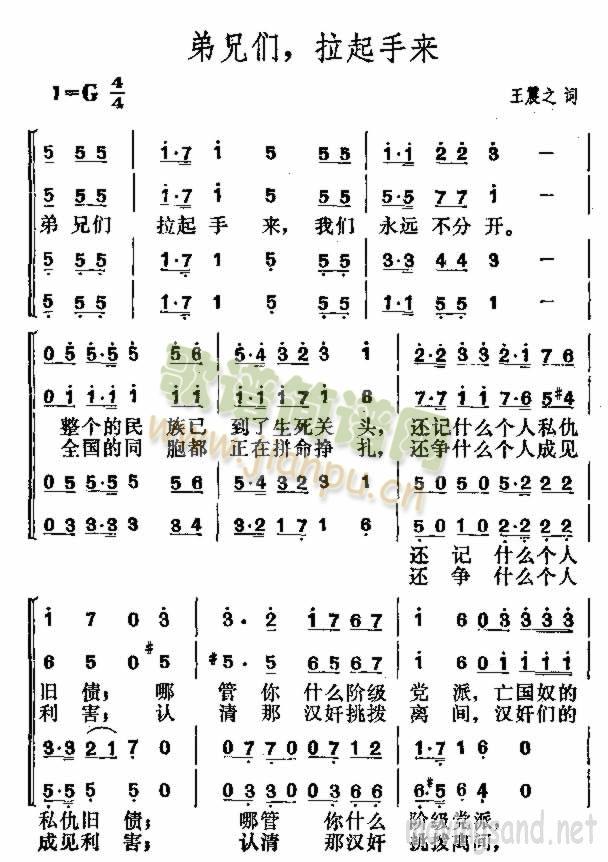 弟兄们，拉起手来
1=G 4/4
王震之 词
5 55 1·7 1 5 55 1·1 22 3 –
5 55 1·7 1 5 55 5·5 77 1 –
弟 兄们 拉起 手 来，我们 永远 不分 开。
5 55 1·7 1 5 55 3·3 44 3 –
5 55 1·7 1 5 55 1·1 55 1 –
05 5·5 5 56 5·4 323 1 2·2 332 1276
01 1·1 1 11 1·1 171 6 7·7 111 7·65#4
整个的民 族已 到了生死关 头，还记什么个人私仇
全国的同 胞都 正在拼命挣 扎，还争什么个人成见
05 5·5 5 56 5·4 323 1 5050 5·5 555
03 3·3 3 34 3·2 171 6 5010 2·2 222
还 记 什么个人
还 争 什么个人
1 7 0 3 3· 2 1767 1 60 0333
6 5 0 #5 #5· 5 5656 1 60 0111
旧 债；哪 管 你 什么阶级 党 派，亡国奴的
利 害；认 清 那 汉奸挑拨 离 间，汉奸们的
3·3 21 7 0 0770 0770 1·7 6 0
5·5 5 5 0 0220 0220 6·#5 64 0
私仇旧 债；哪管 你什么 阶级党派，
成见利 害；认清 那汉奸 挑拨离间，
歌谱简谱网
www.jianpu.cn